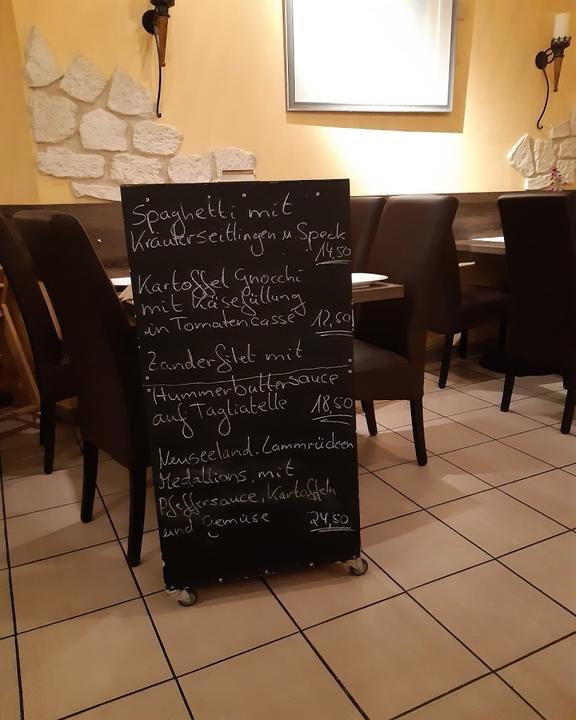 Spaghetti mit
Kräuterseitlingen u. Speck
14,50
Kartoffel Gnocchi
mit Käsefüllung
in Tomatencasse 12,50
Zanderfilet mit
Hummerbuttersauce
auf Tagliatelle 18,50
Neuseeland. Lammrücken
Medallions, mit
Pfeffersauce, Kartoffeln
und Gemüse 24,50